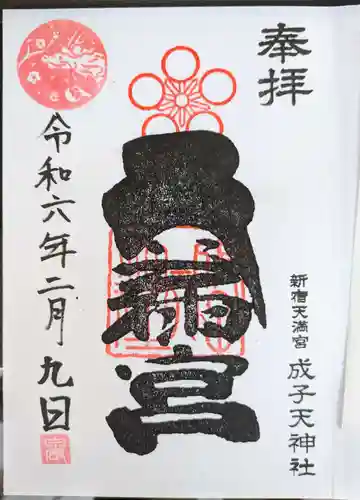 奉拝
新宿天満宮
成子天神社
天満宮
令和六年二月九日